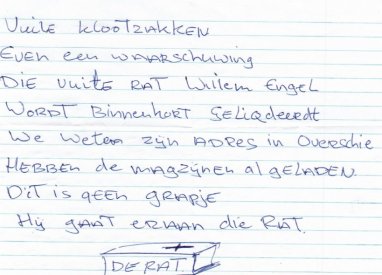 Vuile klootzakken
Even een waarschuwing
Die vuile RAT Willem Engel
WORDT Binnenkort Geliqdeerdt
We weten zijn ADRES in Overschie
HEBBEN de magzijnen al geladen.
Dit is geen grapje
Hij gaat eraan die RAT.
DE RAT